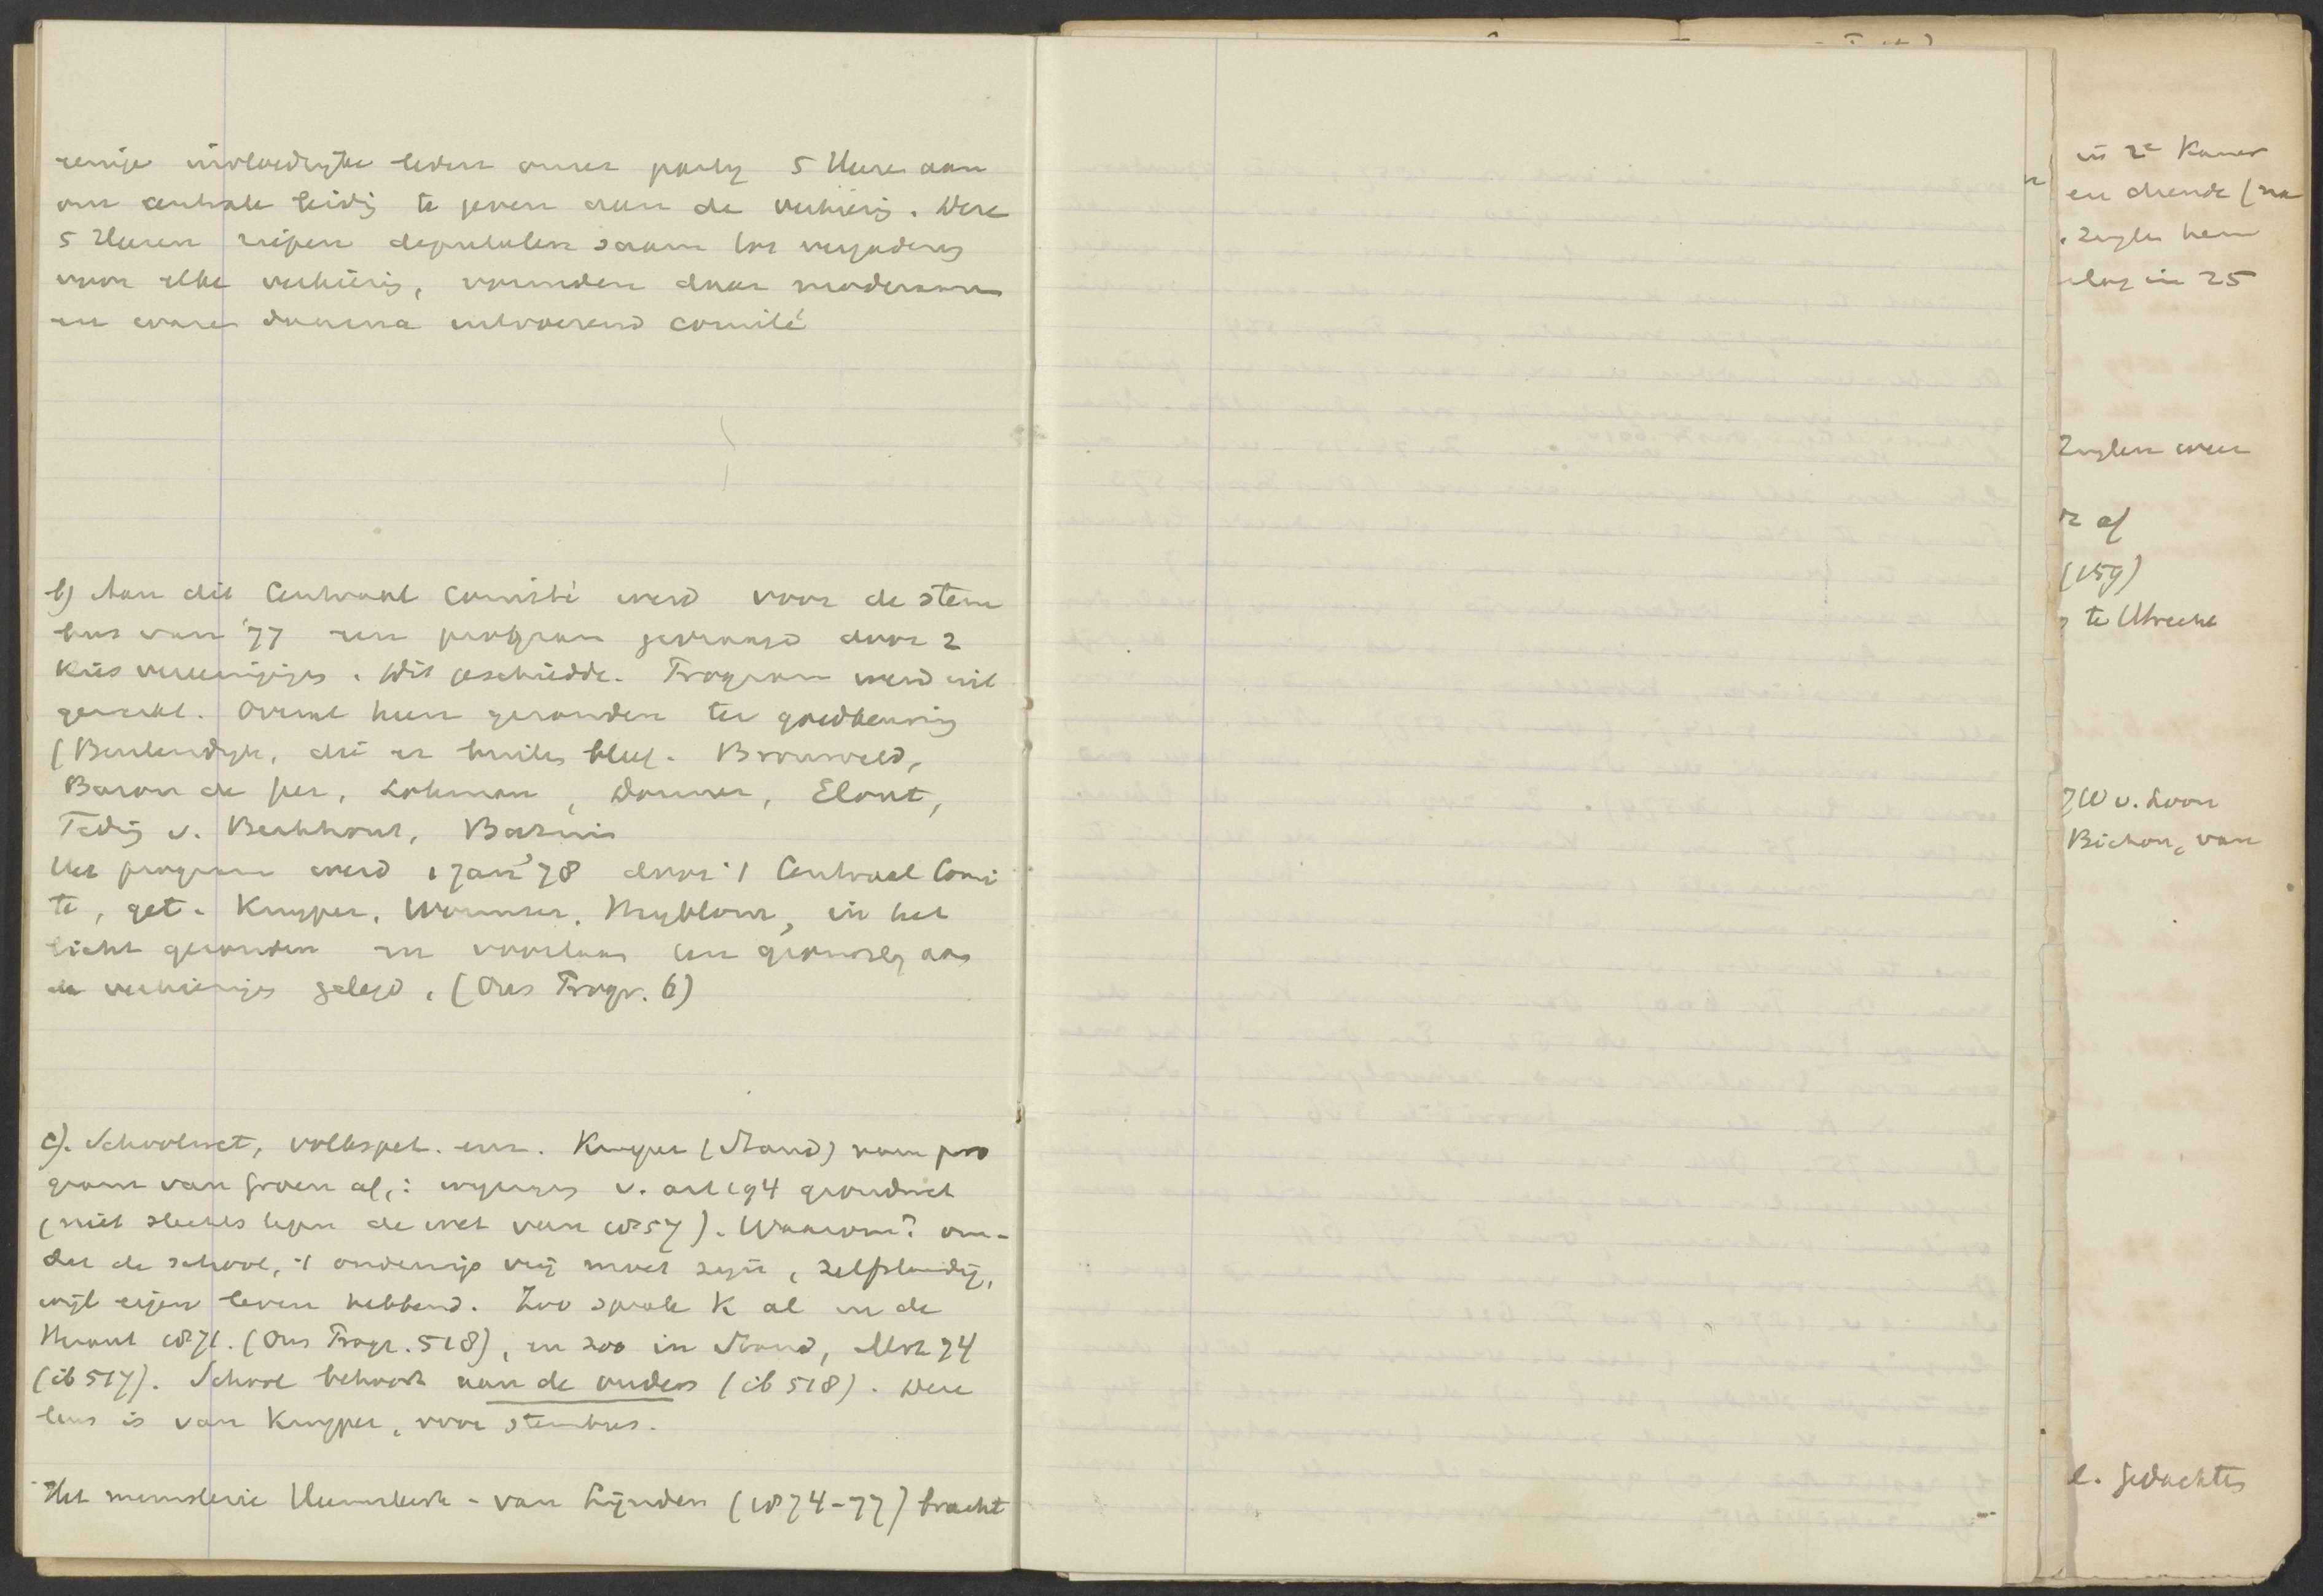 eenige invloedrijke leden onzer party 5 Heeren aan
om centrale leidig te geven aan de verkiezg. Deze
5 Heeren riepen deputaten saam tot vergaderg
voor elke verkiezig, vormden daar moderamen
en waren daarna uitvoerend comité
b) Aan dit Centraal Comité werd voor de stem
bus van '77 een program gevraagd door 2
Kiesvereenigigs. Dit geschiedde. Program werd uit
gewerkt. Overal heen gezonden ter goedkeurig
(Beukendijk, die er buiten bleef. Bronsveld,
Baron de Geer, Lohman, Donner, Elout,
Teding v. Berkhout, Bavinc
Het program werd 1 Jan '78 door 't Centraal Comi
te, get. Kuyper, Wormser, Heyblom, in het
licht gezonden en voortaan ten grondslg aan
de verkiezigs gelegd. (Ons Progr. 6)
c). Schoolwet, volkspet. enz. Kuyper (Stand) nam pro
gram van Groen af,: wijzigs v. art 194 grondwet
(niet slechts tegen de wet van 1857). Waarom? om-
dat de school, 't onderwijs vrij moet zijn, zelfstandig,
wijl eigen leven hebbend. Zoo sprak K al in de
Heraut 1871. (Ons Progr. 518), en zoo in Stand, Mrt 74
(ib 517). School behoort aan de ouders (ib 518). Deze
leus is van Kuyper, voor stembus.
Het ministerie Heemskerk - van Lijnden (1874-77) bracht
in 2e Kamer
en diende (na
Zuylen hem
in 25
Zuylen weer
af
(159)
te Utrecht
v. Loon
Bichon, van
l. gedachtes